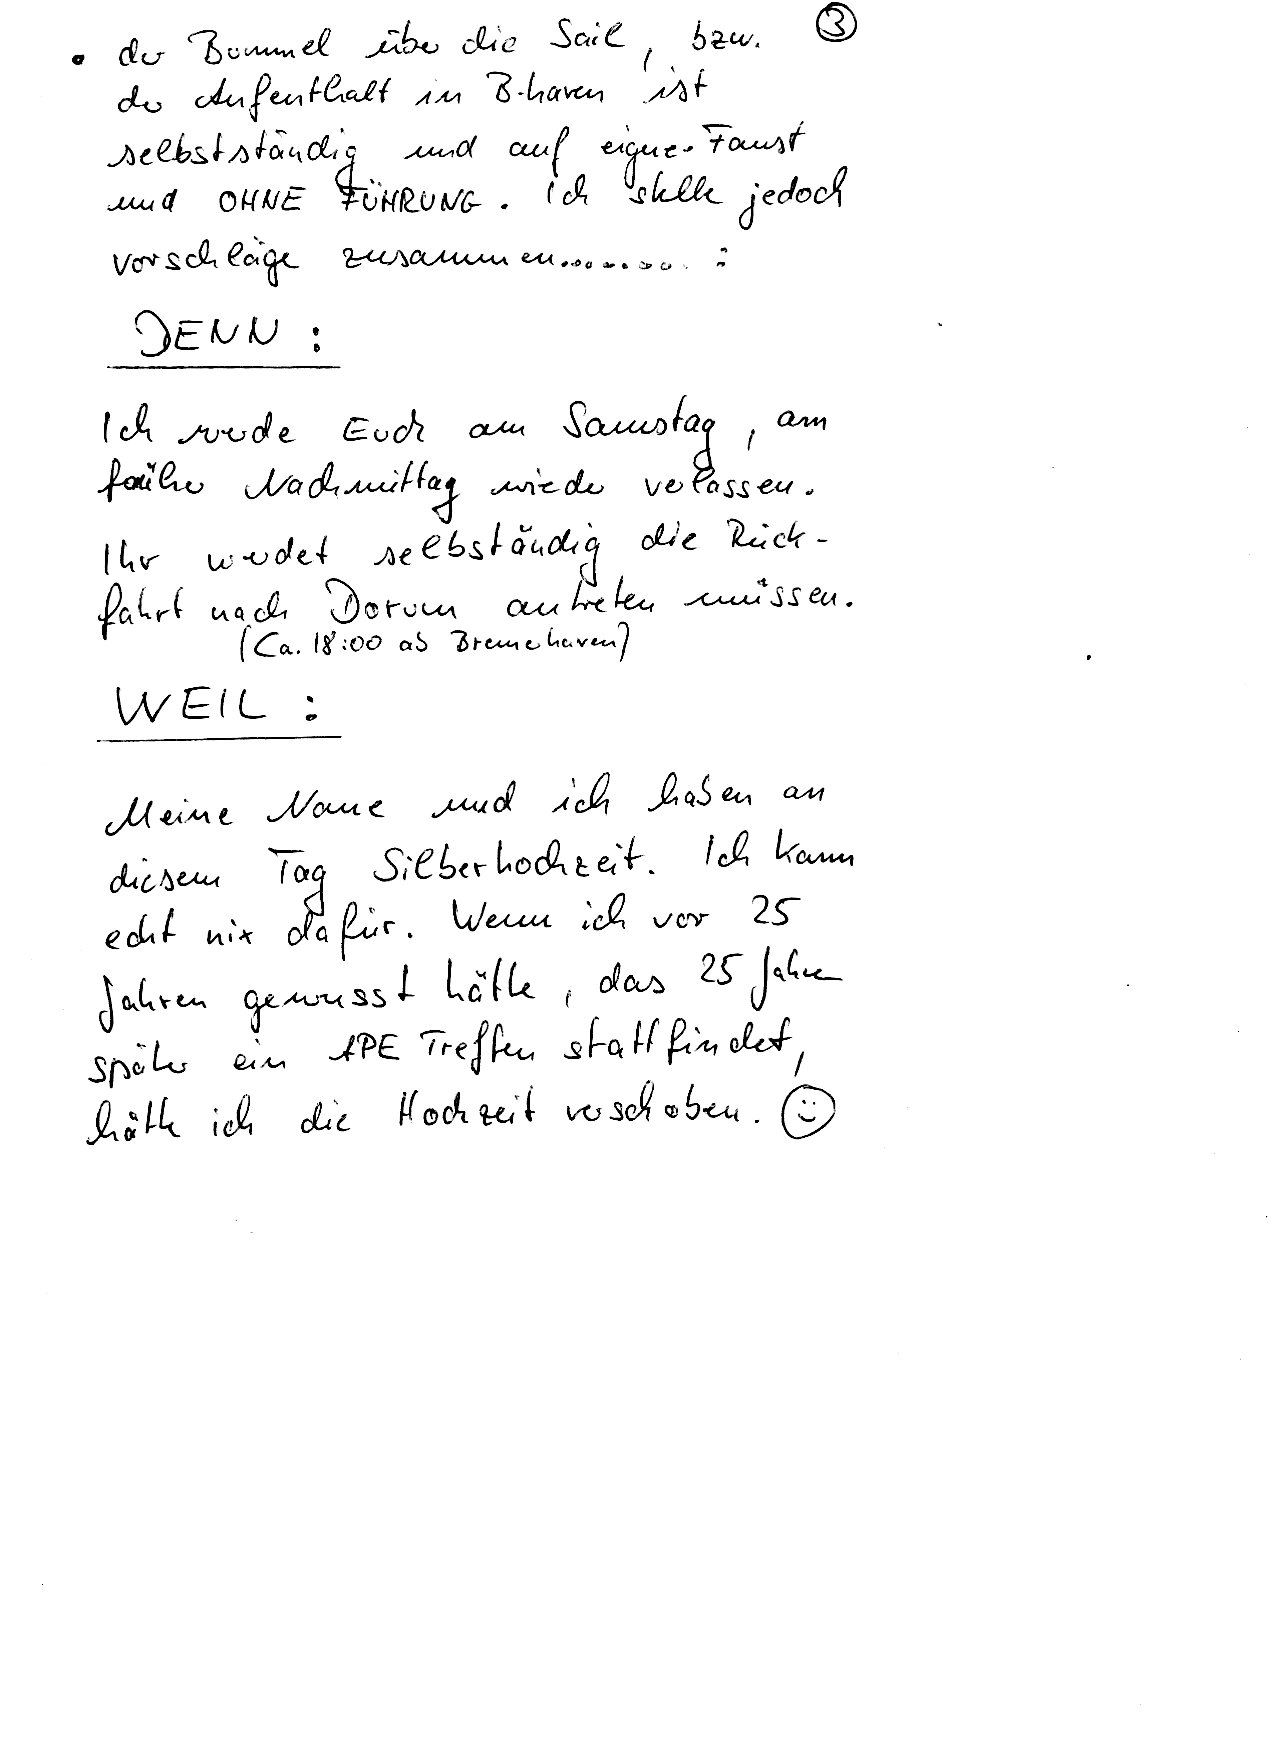 ③
• der Bummel über die Sail, bzw.
der Aufenthalt in B-haven ist
selbstständig und auf eigene Faust
und OHNE FÜHRUNG. Ich stelle jedoch
Vorschläge zusammen......... :
DENN :
Ich werde Euch am Samstag, am
frühen Nachmittag wieder verlassen.
Ihr werdet selbständig die Rück-
fahrt nach Dorum antreten müssen.
(Ca. 18:00 ab Bremerhaven)
WEIL :
Meine und ich haben an
diesem Tag Silberhochzeit. Ich kann
echt nix dafür. Wenn ich vor 25
Jahren gewusst hätte, das 25 Jahre
später ein APE Treffen stattfindet,
hätte ich die Hochzeit verschoben. ☺